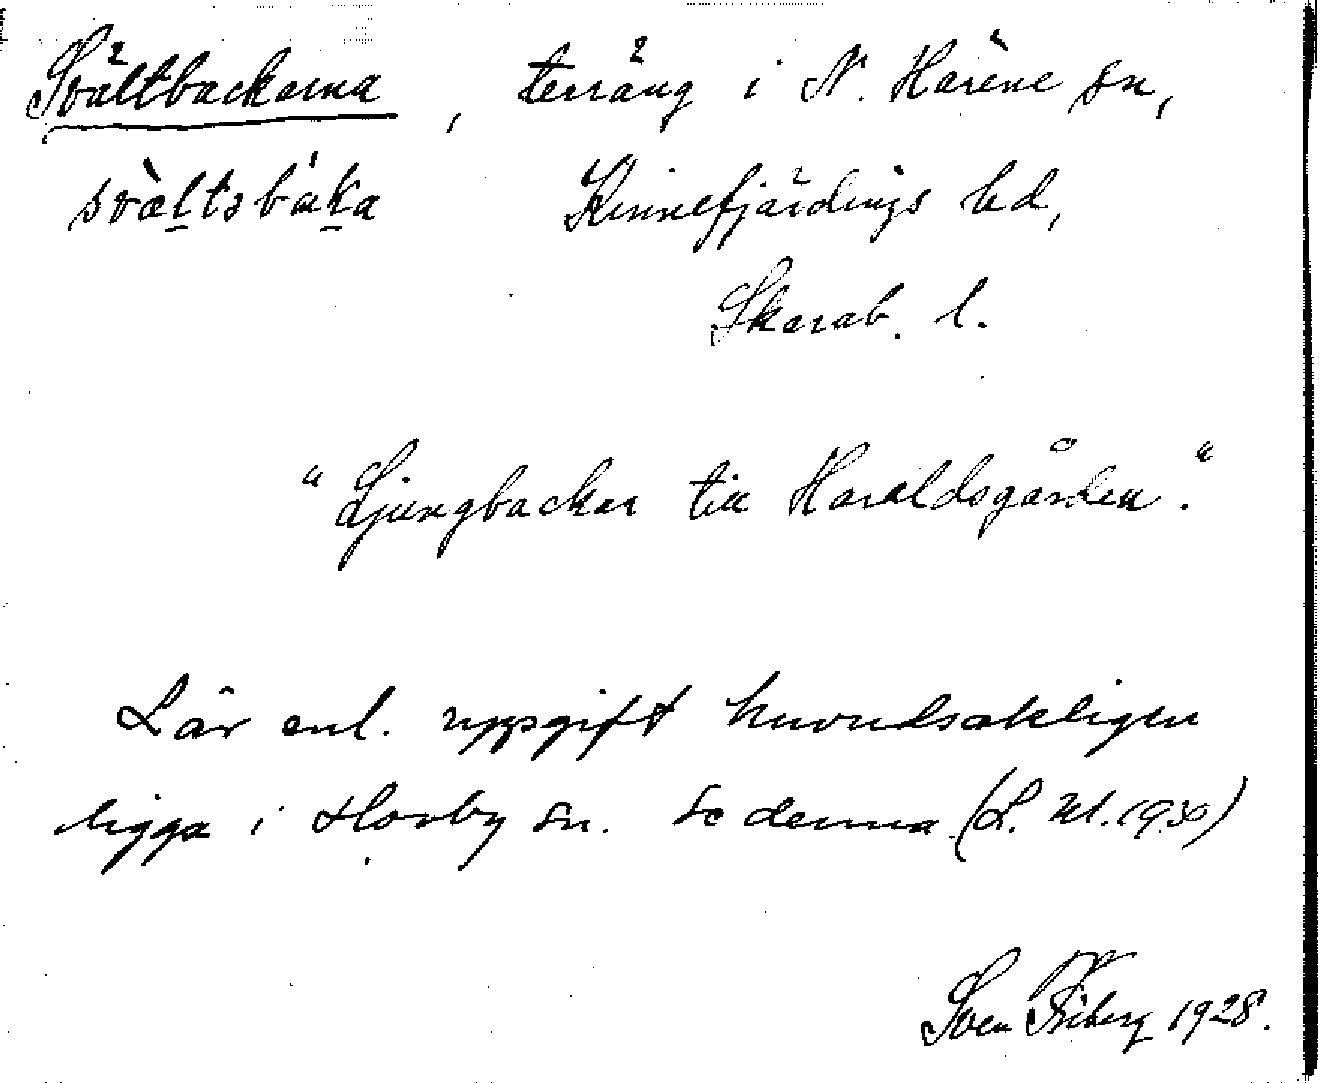 Svältbackarna, terräng i N. Härene sn,
svæ̀ltsbáka Kinnefjärdings hd,
Skarab. l.
"Ljungbackar till Haraldsgården."
Lär enl. uppgift huvudsakligen
ligga i Hovby sn. Se denna (L. M. 1950)
Sven Friberg 1928.